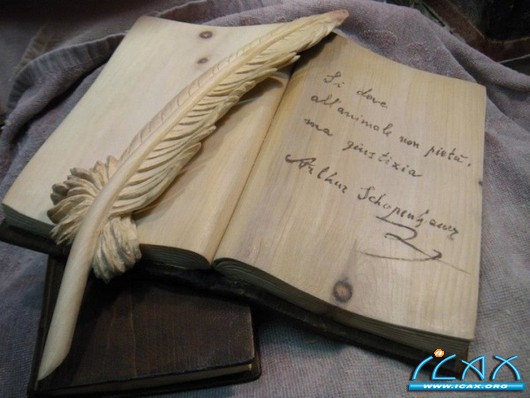 Si deve
all'animale non pietà,
ma giustizia
Arthur Schopenhauer
iCAX
WWW.ICAX.ORG